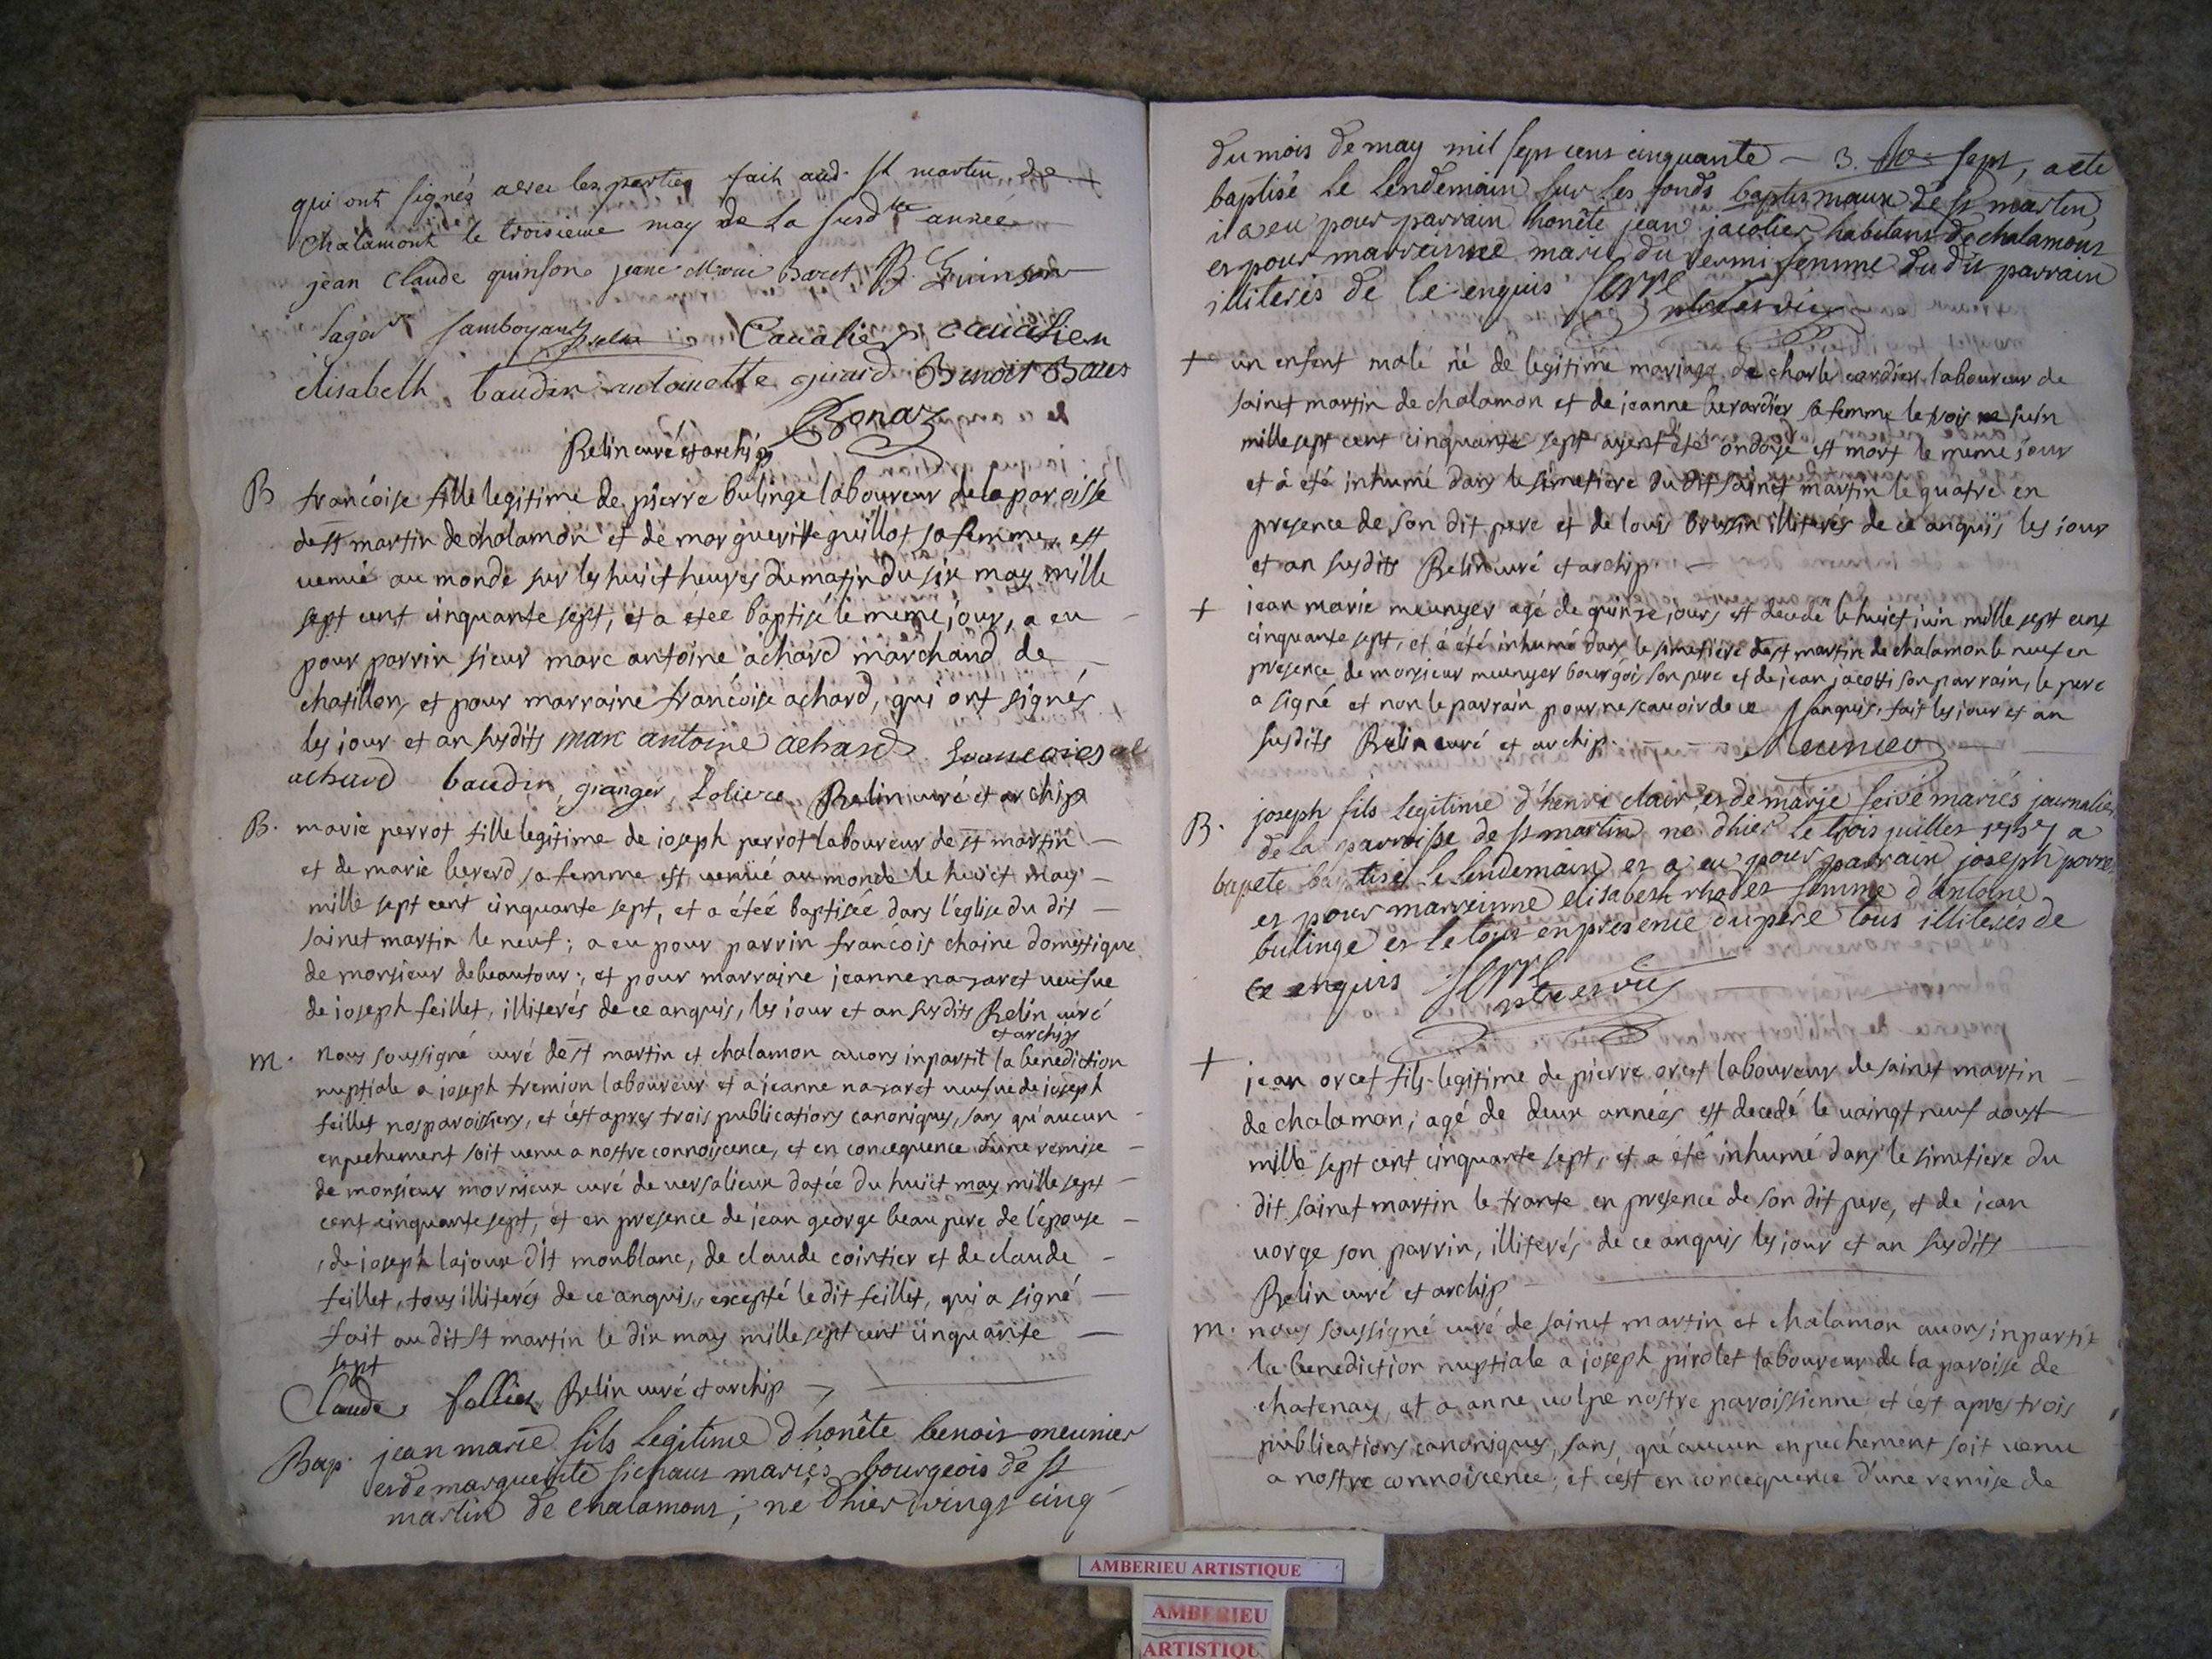 qui ont signés avec les parties fait aud. st martin de
chalamont le troisieme may de la susd.te année
jean Claude quinson jeane Marie Baret B. Guinson
Sagor Cavalier
elisabeth baudin antoinette girard Benoit
Bonaz
Relin curé et archip
B francoise fille legitime de pierre bulinge laboureur de la paroisse
de st martin de chalamon et de marguerite guillot sa femme est
venue au monde sur les huict heures du matin du six may mille
sept cent cinquante sept, et a etee baptisé le meme jour, a eu
pour parrin sieur marc antoine achard marchand de
chatillon, et pour marraine francoise achard, qui ont signés
les jour et an susdits marc antoine achard
achard baudin, granger, Relin curé et archip
B. marie perrot fille legitime de joseph perrot laboureur de st martin
et de marie bererd sa femme est venüe au monde le huict may
mille sept cent cinquante sept, et a étéé baptisée dans l'eglise du dit
sainct martin le neuf; a eu pour parrin francois chaine domestique
de monsieur debeautour; et pour marraine jeanne nazaret veufve
de joseph feillet, illiterés de ce anquis, les jour et an susdits Relin curé
et archip
m. nous soussigné curé de st martin et chalamon avons inpartit la benediction
nuptiale a joseph tremion laboureur et a jeanne nazaret veufve de joseph
feillet nos paroissiens, et c'est apres trois publications canoniques, sans qu'aucun
enpechement soit venu a nostre connoiscence, et en concequence d'une remise
de monsieur mornieux curé de versalieux datéé du huict may mille sept
cent cinquante sept, et en presence de jean george beau pere de l'epouse
, de joseph lajoux dit monblanc, de claude cointier et de claude
feillet, tous illiterés de ce anquis, excepté le dit feillet, qui a signé
fait au dit st martin le dix may mille sept cent cinquante
sept
Claude follier Relin curé et archip
Bap. jean marie fils legitime d'honête benoit meunier
et de marguerite sichaux mariés bourgeois de st
martin de chalamont; né d'hier vingt cinq
du mois de may mil sept cent cinquante sept, a eté
baptisé le lendemain sur les fonds baptismaux de st martin
il a eu pour parrain honête jean jacotier habitant de chalamont
et pour marreinne marie du vermi femme du dit parrain
illiterés de ce enquis Serre
ptre et vic
+ un enfent male né de legitime mariage de charle cardier laboureur de
sainct martin de chalamon et de jeanne berardier sa femme le trois juin
mille sept cent cinquante sept ayent été ondoyé est mort le meme jour
et a été inhumé dans le simetiere du dit sainct martin le quatre en
presence de son dit pere et de louis brossin illiterés de ce anquis les jour
et an susdits Relin curé et archip
+ jean marie meunyer agé de quinze jours est decedé le huict juin mille sept cent
cinquante sept, et a été inhumé dans le simetiere de st martin de chalamon le neuf en
presence de monsieur meunyer bourgois son pere et de jean jacotti son parrain, le pere
a signé et non le parrain pour ne scauoir de ce anquis, fait les jour et an
susdits Relin curé et archip. Meunier
B. joseph fils legitime d'henri clair et de marie feivé mariés journalier
de la parroisse de st martin né d'hier le trois juillet 1757 a
eté baptisé le lendemain et a eu pour parrain joseph
et pour marreinne elisabeth rhodet femme d'antoine
bulinge et le tout en presence du pere tous illiterés de
ce enquis Serre
ptre et vic
+ jean orcet fils legitime de pierre orcet laboureur de sainct martin
de chalamon; agé de deux annéés est decedé le vaingt neuf aoust
mille sept cent cinquante sept, et a été inhumé dans le simetiere du
dit sainct martin le trante en presence de son dit pere, et de jean
vorge son parrin, illiterés de ce anquis les jour et an susdits
Relin curé et archip
m. nous soussigné curé de sainct martin et chalamon avons inpartit
la benediction nuptiale a joseph pirolet laboureur de la paroisse de
chatenay, et a anne volpe nostre paroissienne et c'est apres trois
publications canoniques, sans qu'aucun enpechement soit venu
a nostre connoiscence; et c'est en concequence d'une remise de
AMBERIEU ARTISTIQUE
AMBERIEU
ARTISTIQU